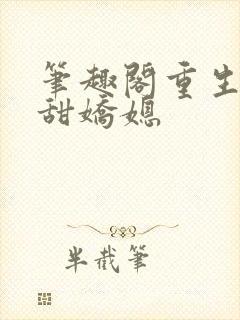 筆趣閣重生
甜嬌媳
半截筆